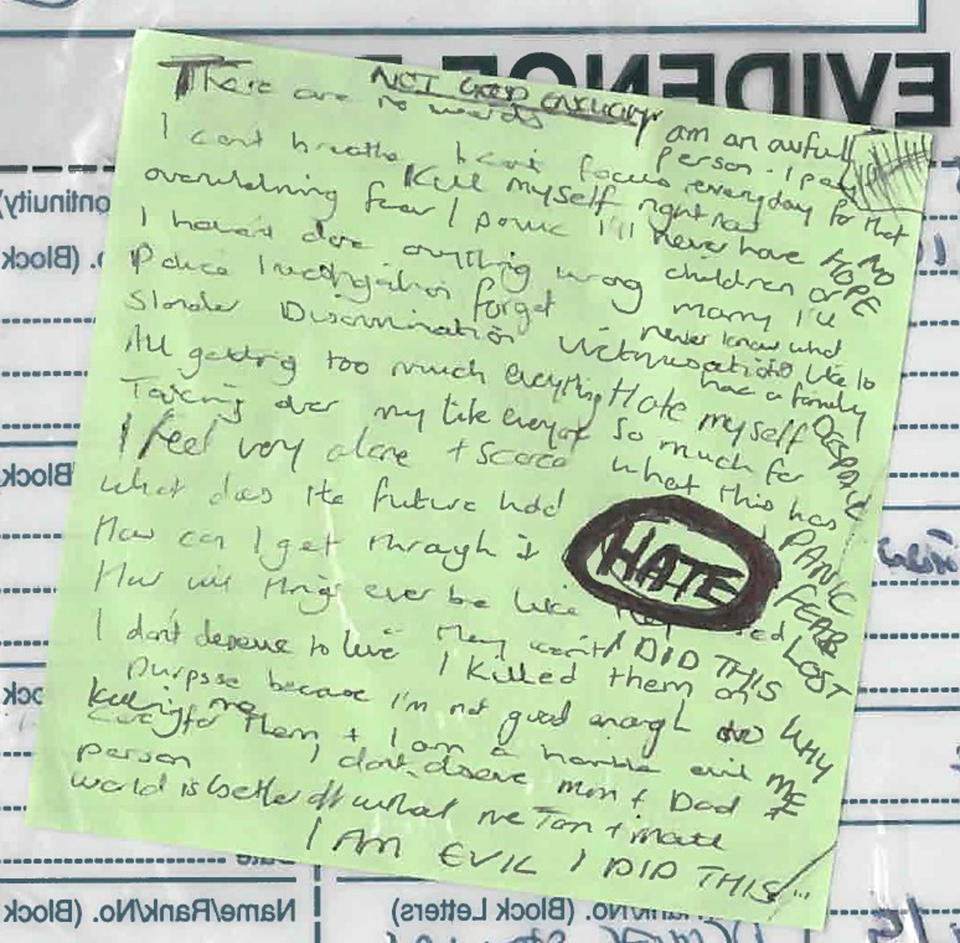 EVIDENCE
NOT GOOD ENOUGH
There are no words
I cant breathe I can't focus
overwhelming fear I panic
Kill myself right now
I haven't done anything wrong
Police Investigation forget
Slander Discrimination victimisation
All getting too much everything
Taking over my life everyday
I feel very alone + scared
what does the future hold
How can I get through it
How will things ever be like
I don't deserve to live They won't
I killed them on
purpose because I'm not good enough
to care for them + I am a horrible evil
person
I don't deserve mum + Dad
world is better off without me Tom + Matt
I AM EVIL I DID THIS
am an awful
person . I pay
everyday for that
I'll never have
children or
marry I'll
never know what
like to
have a family
Hate myself
so much for
what this has
HATE
I DID THIS
NO
HOPE
DESPAIR
PANIC
FEAR
LOST
WHY
ME
killing me
ontinuity)
o. (Block
Block
ock
Date
Name/Rank/No. (Block
Rank/No. (Block Letters)